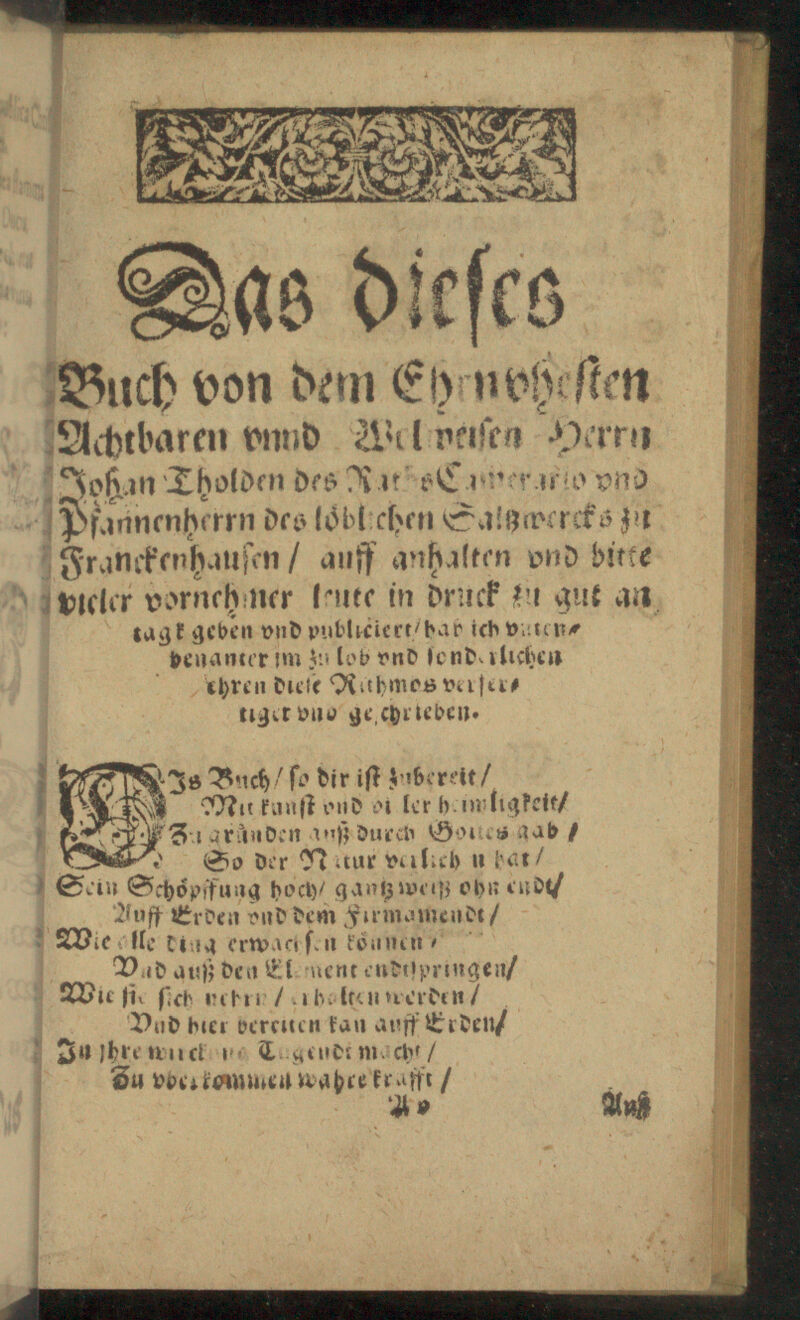 Das dieses
Buch von dem Ehrnvhesten
Achtbaren vnnd Wolweisen Herrn
Johan Tholden des Raths Camerario vnd
Pfannenherrn des löblichen Saltzwercks zu
Franckenhausen / auff anhalten vnd bitte
vieler vornehmer leute in druck zu gut an
tagk geben vnd publiciert / hab ich vnten-
benanter im zu lob vnd sonderlichen
ehren diese Rithmos verfer-
tiget vnd geschrieben.
DIs Buch / so dir ist zubereit /
Mit kunst vnd heimligkeit /
Zu gründen auß durch Gottes gab /
So der Natur verliehen hat /
Sein Schöpffung hoch / gantz weiß ohn endt /
Auff Erden vnd dem Firmamendt /
Wie alle ding erwachsen können /
Vnd auß den Element endtspringen /
Wie sie sich nehrn / erhalten werden /
Vnd hier bereiten kan auff Erden /
In jhre Tugendt macht /
Zu vberkommen wahre krafft /
A v Auß